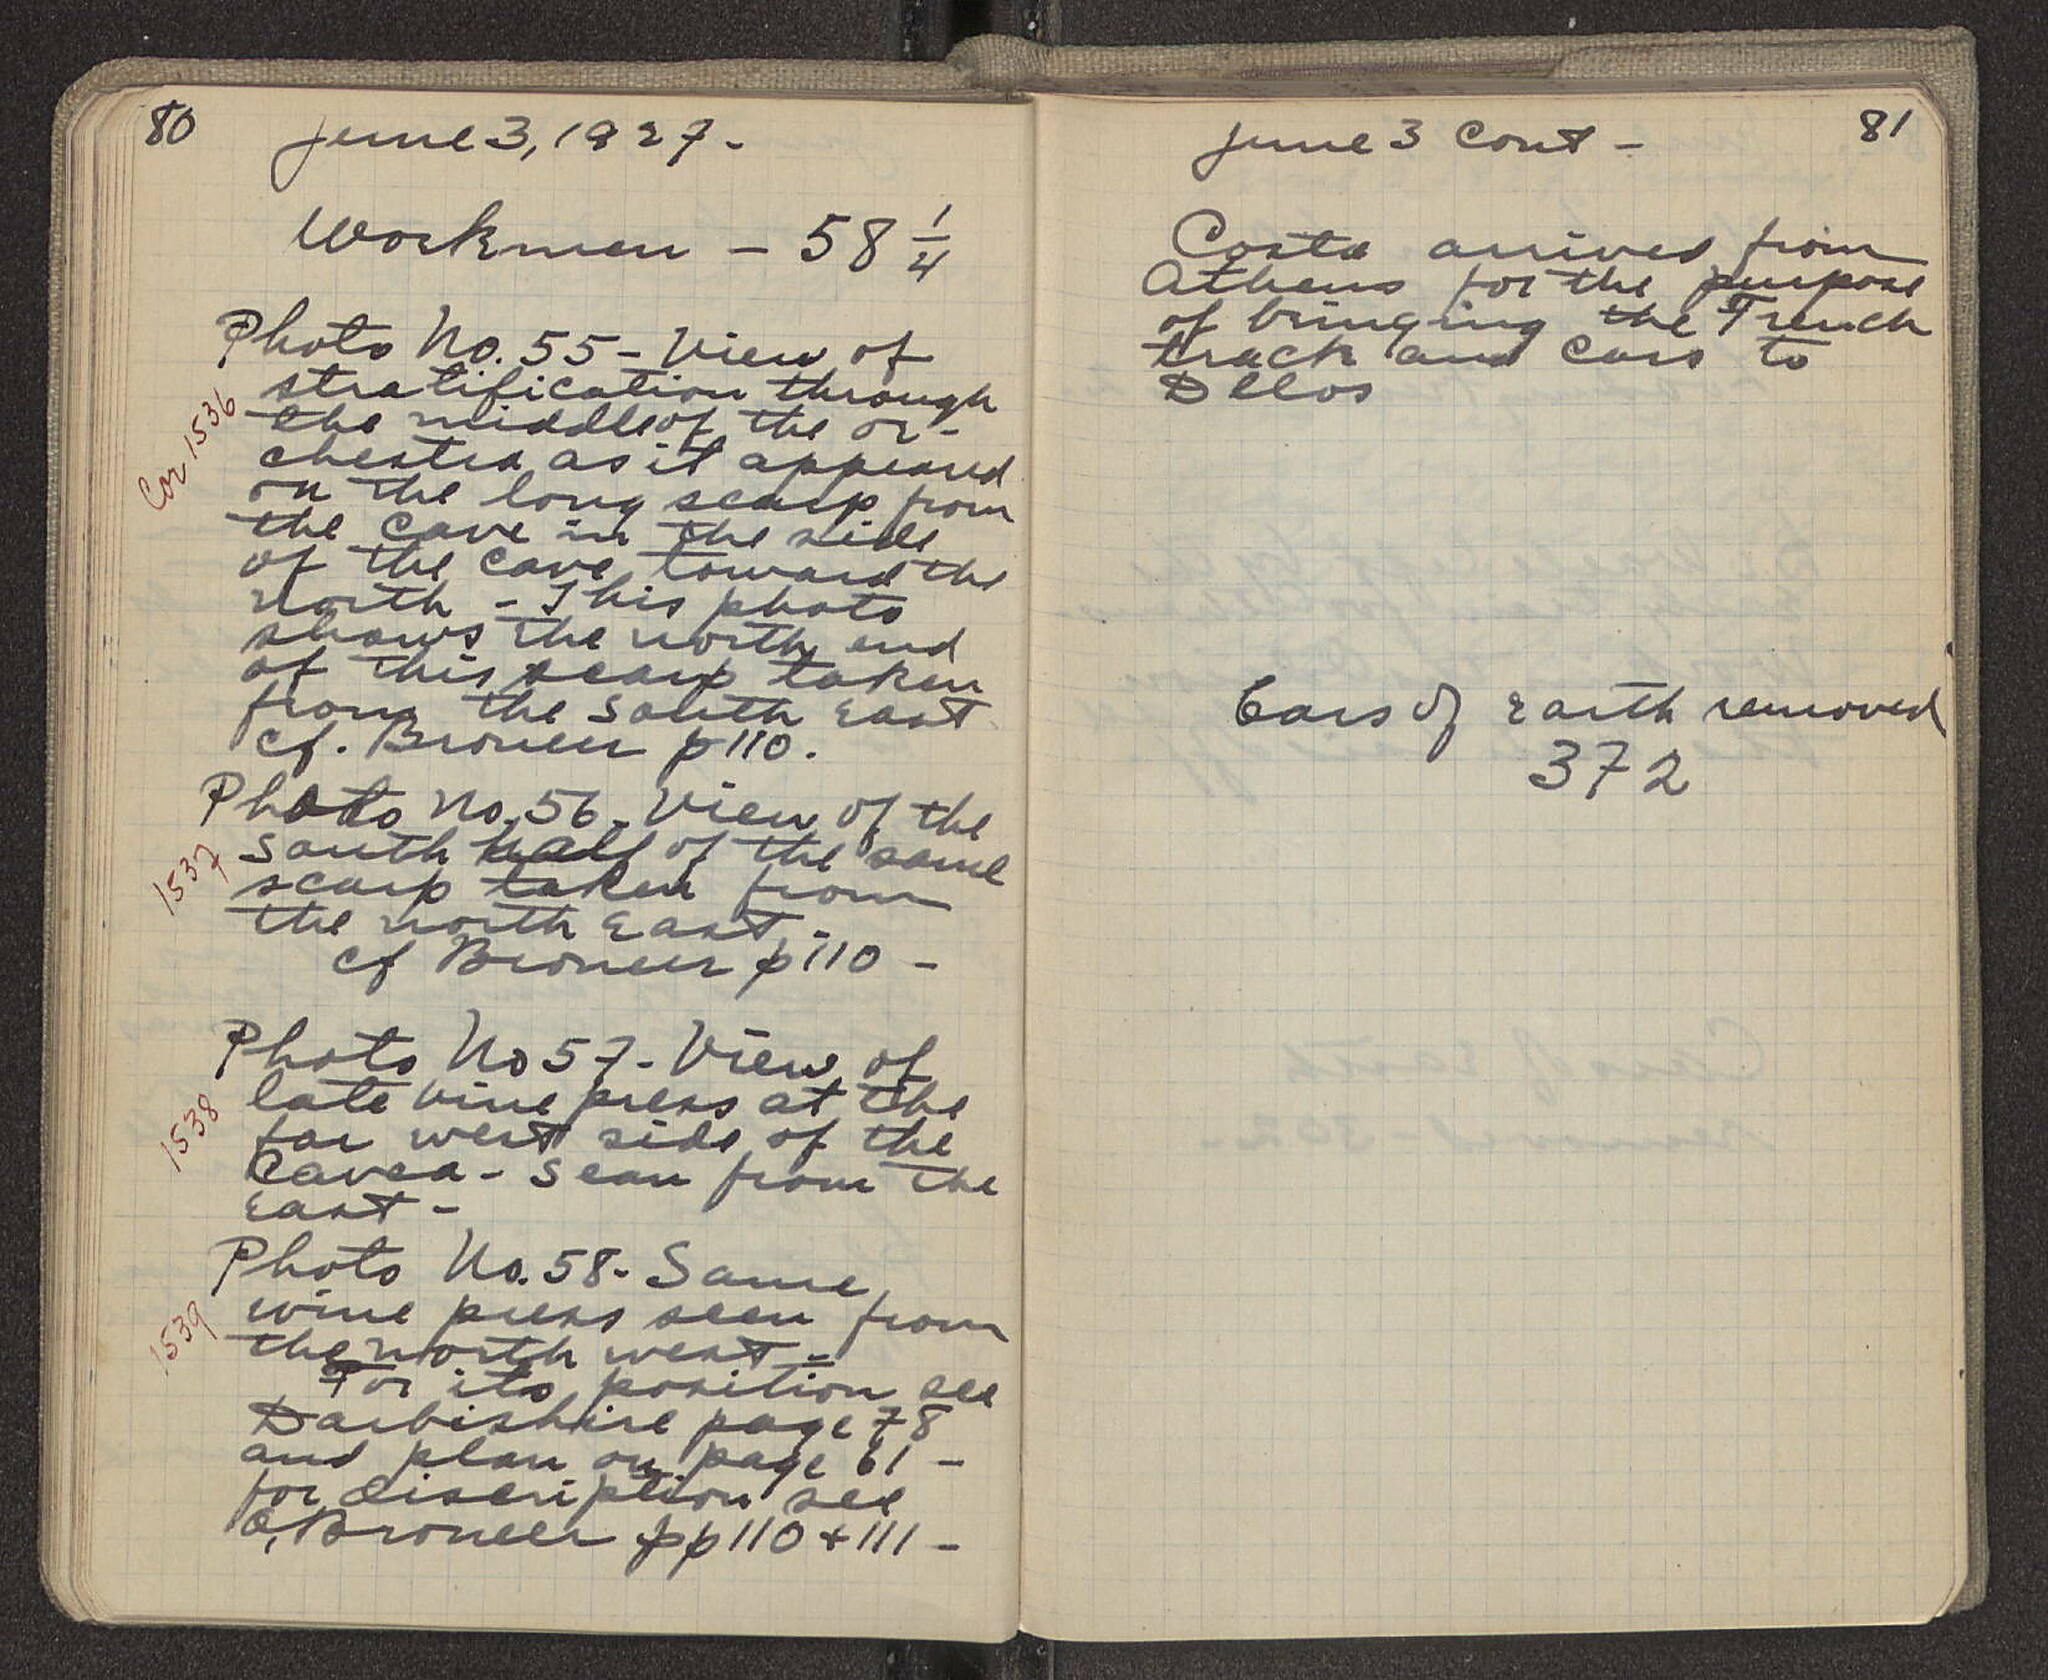 80
June 3, 1927.-
Workmen - 58 1/4
Photo No. 55 - View of
stratification through
the middle of the or-
chestra as it appeared
on the long scarp from
the cave in the side
of the cave toward the
north - This photo
shows the north end
of this scarp taken
from the South East
cf. Broneer p 110.
Cor 1536
Photo No. 56 - View of the
South half of the same
scarp taken from
the north East -
cf Broneer p 110 -
1537
Photo No 57 - View of
late vine press at the
far west side of the
Cavea - Sean from the
East -
1538
Photo No. 58 - Same
wine press seen from
the north west -
For its position see
Darbishire page 78
and plan on page 61 -
for discription see
O, Broneer pp 110 + 111 -
1539
81
June 3 Cont -
Costa arrived from
Athens for the purpose
of bringing the French
track and Cars to
Dellos
Cars of Earth removed
372